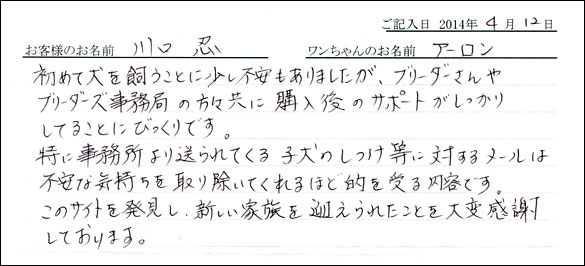 ご記入日 2014年 4 月 12 日
お客様のお名前 川口 忍 ワンちゃんのお名前 アーロン
初めて犬を飼うことに少し不安もありましたが、ブリーダーさんや
ブリーダーズ事務局の方々共に購入後のサポートがしっかり
してることにびっくりです。
特に事務所より送られてくる子犬のしつけ等に対するメールは
不安な気持ちを取り除いてくれるほど的を受る内容です。
このサイトを発見し、新しい家族を迎えられたことを大変感謝
しております。